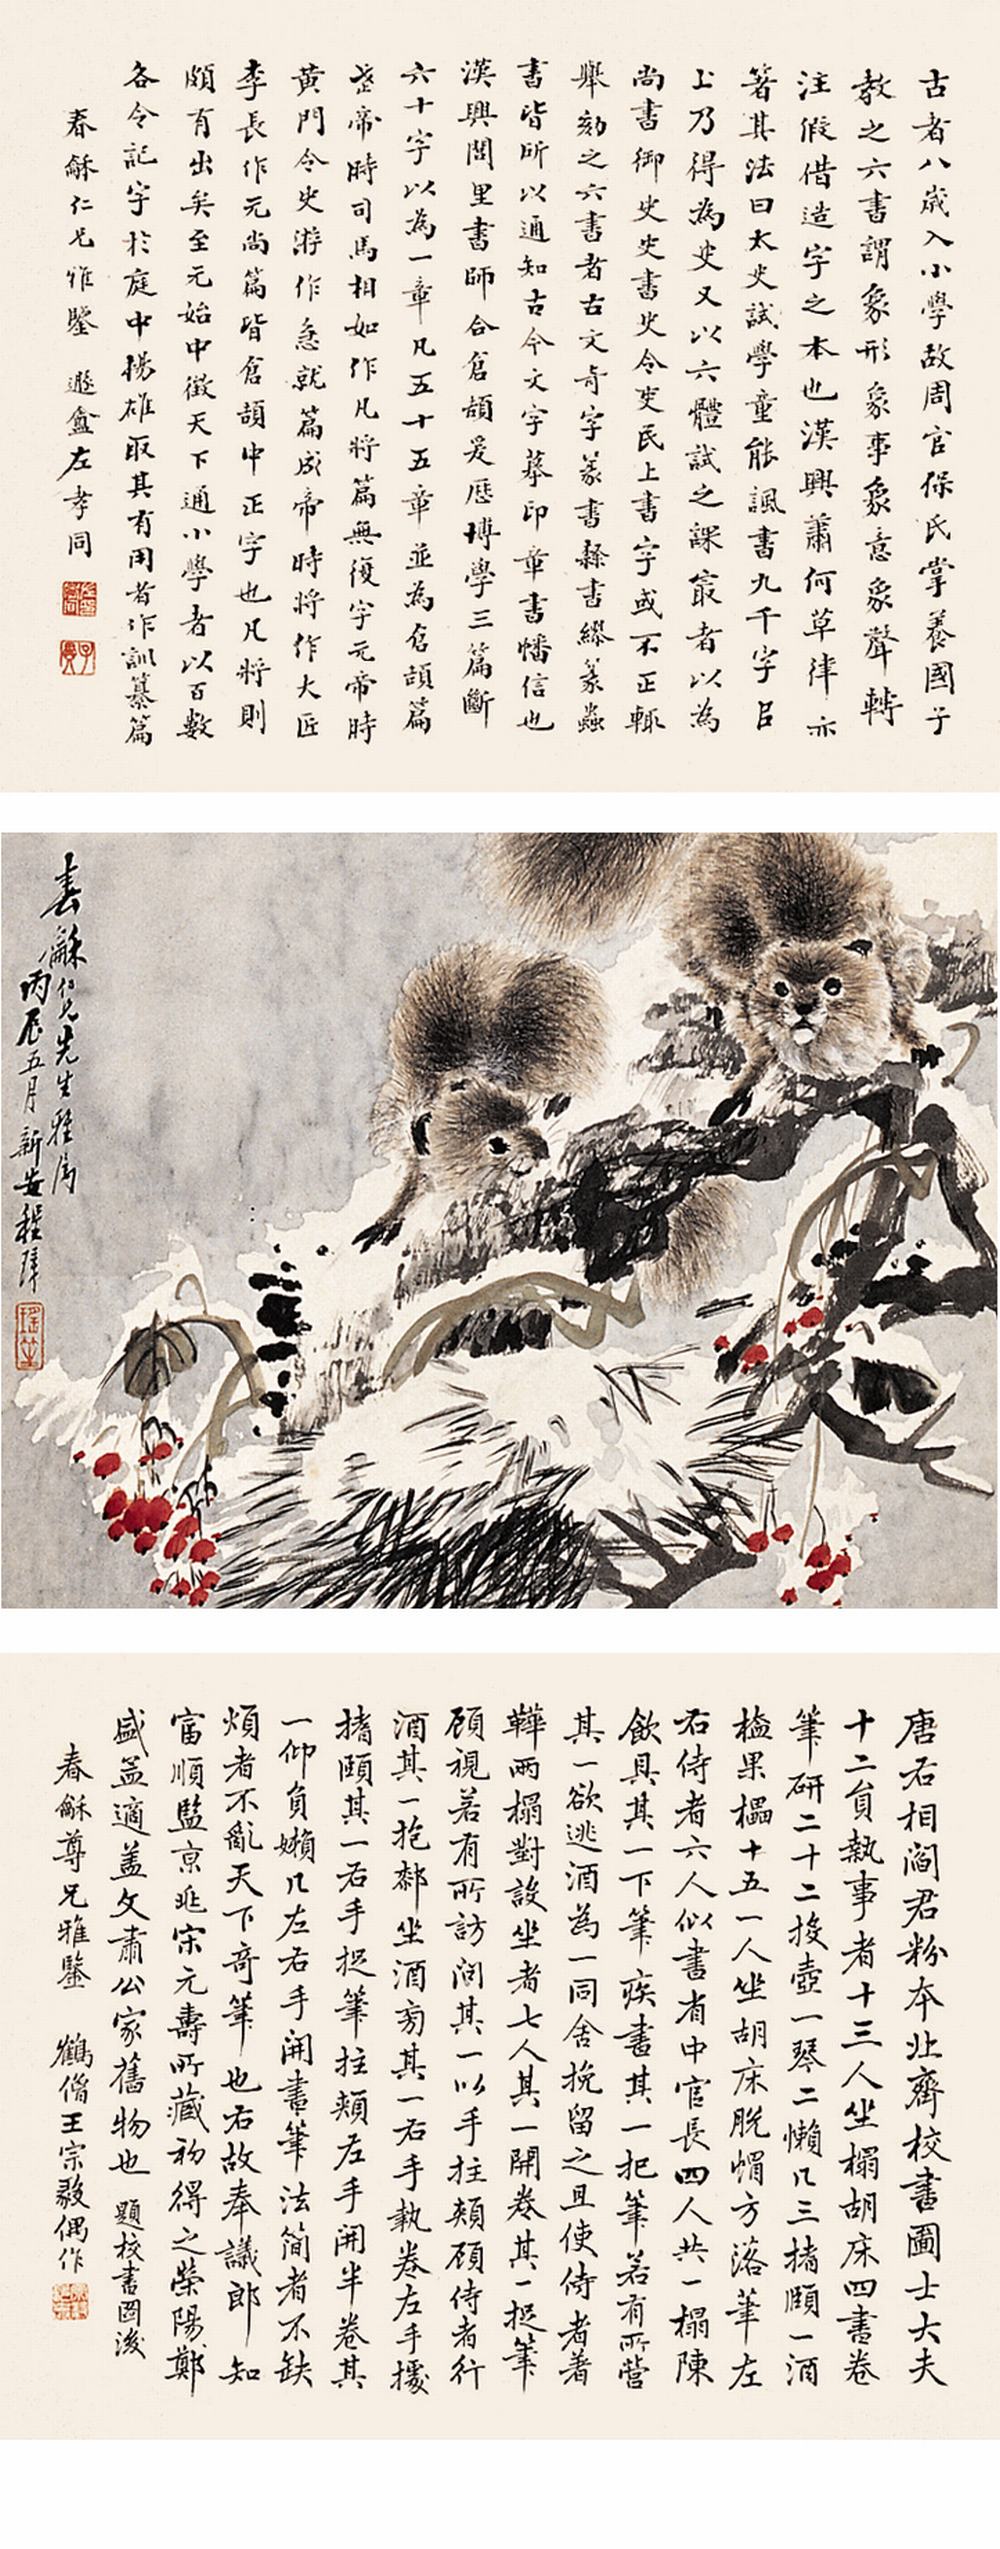 古者八歲入小學故周官保氏掌養國子
教之六書謂象形象事象意象聲轉
注假借造字之本也漢興蕭何草律亦
著其法曰太史試學童能諷書九千字㠯
上乃得為史又以六體試之課㝡者以為
尚書御史史書史令吏民上書字或不正輒
舉劾之六書者古文奇字篆書隸書繆篆蟲
書皆所以通知古今文字摹印章書幡信也
漢興閭里書師合倉頡爰歷博學三篇斷
六十字以為一章凡五十五章並為倉頡篇
武帝時司馬相如作凡將篇無復字元帝時
黃門令史游作急就篇成帝時將作大匠
李長作元尚篇皆倉頡中正字也凡將則
頗有出矣至元始中徵天下通小學者以百數
各令記字於庭中揚雄取其有用者作訓纂篇
春龢仁兄雅鑒 遯盦左孝同
春龢仁兄先生雅屬
丙辰五月新安程璋
瑤笙
唐右相閻君粉本北齊校書圖士大夫
十二員執事者十三人坐榻胡床四書卷
筆研二十二投壺一琴二懶几三搘頤一酒
榼果櫑十五一人坐胡床脫帽方落筆左
右侍者六人似書省中官長四人共一榻陳
飲具其一下筆疾書其一把筆若有所營
其一欲逃酒為一同舍挽留之且使侍者著
鞾兩榻對設坐者七人其一開卷其一捉筆
顧視若有所訪問其一以手拄頰顧侍者行
酒其一抱坐酒旁其一右手執卷左手據
搘頤其一右手捉筆拄頰左手開半卷其
一仰負嬾几左右手開書筆法簡者不缺
煩者不亂天下奇筆也右故奉議郎知
富順監京兆宋元壽所藏初得之榮陽鄭
盛孟適蓋文肅公家舊物也 題校書圖後
春龢尊兄雅鑒 鶴儕王宗毅偶作